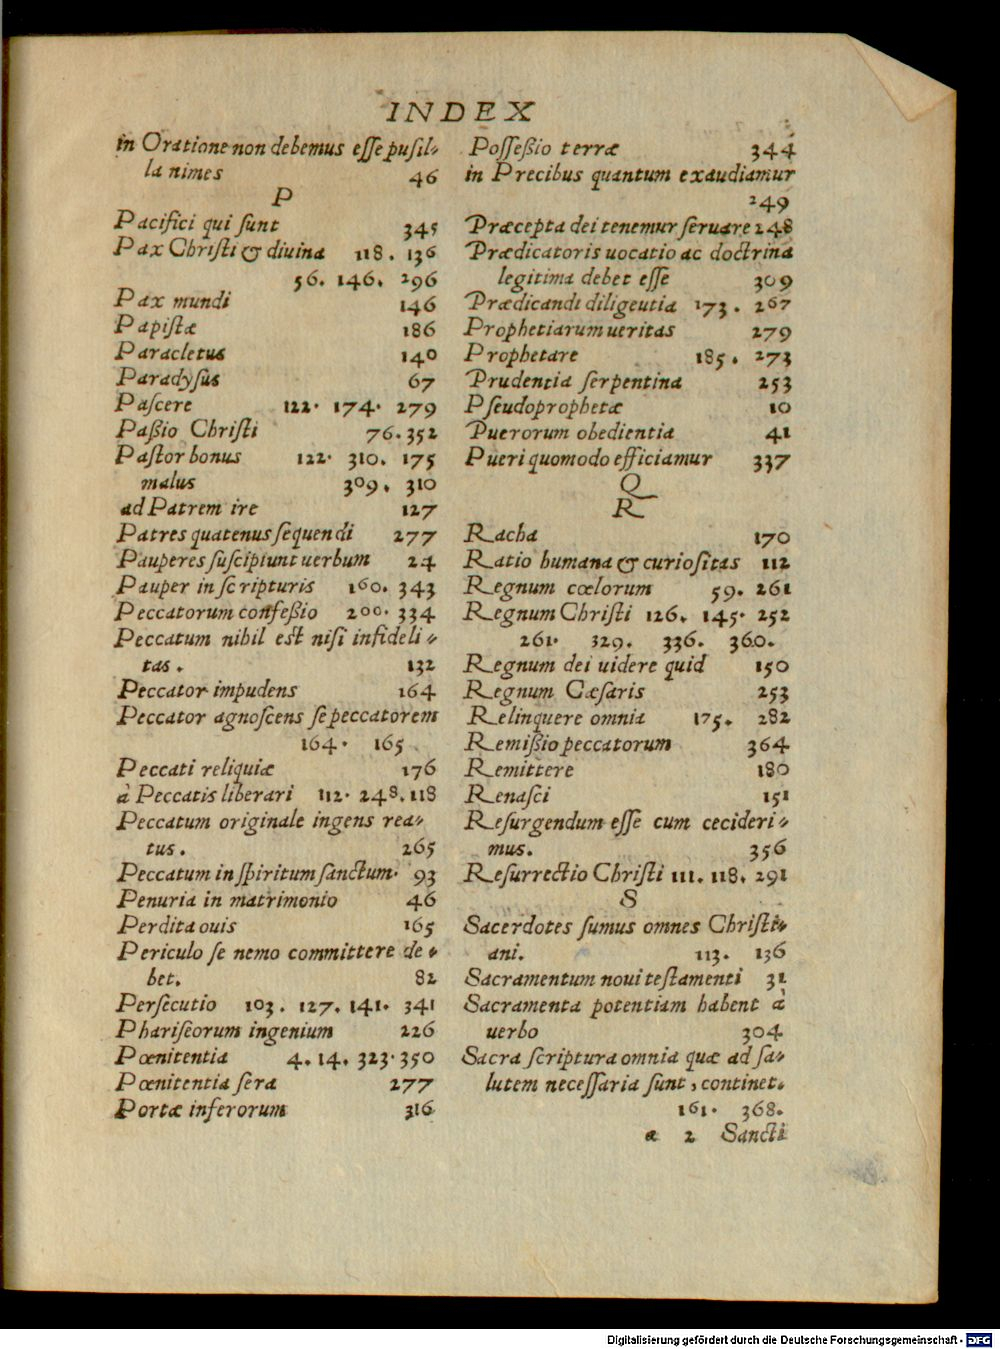 INDEX
in Oratione non debemus eſſe puſil⸗
la nimes 46
P
Pacifici qui ſunt 345
Pax Chriſti & diuina 118. 136
56. 146. 296
Pax mundi 146
Papiſtæ 186
Paracletus 140
Paradyſus 67
Paſcere 122. 174. 279
Paßio Chriſti 76. 352
Paſtor bonus 122. 310. 175
malus 309. 310
ad Patrem ire 127
Patres quatenus ſequendi 277
Pauperes ſuſcipiunt uerbum 24
Pauper in ſcripturis 160. 343
Peccatorum confeßio 200. 334
Peccatum nihil est niſi infideli⸗
tas. 132
Peccator impudens 164
Peccator agnoſcens ſe peccatorem
164. 165
Peccati reliquiæ 176
à Peccatis liberari 112. 248. 118
Peccatum originale ingens rea⸗
tus. 265
Peccatum in ſpiritum ſanctum. 93
Penuria in matrimonio 46
Perdita ouis 165
Periculo ſe nemo committere de⸗
bet. 82
Perſecutio 103. 127. 141. 341
Phariſeorum ingenium 226
Pœnitentia 4. 14. 323. 350
Pœnitentia ſera 277
Portæ inferorum 316
Poſſeßio terræ 344
in Precibus quantum exaudiamur
249
Præcepta dei tenemur ſeruare 248
Prædicatoris uocatio ac doctrina
legitima debet eſſe 309
Prædicandi diligeutia 173. 267
Prophetiarum ueritas 279
Prophetare 185. 273
Prudentia ſerpentina 253
Pſeudoprophetæ 10
Puerorum obedientia 41
Pueri quomodo efficiamur 337
Q
R
Racha 170
Ratio humana & curioſitas 112
Regnum cœlorum 59. 261
Regnum Chriſti 126. 145. 252
261. 329. 336. 360.
Regnum dei uidere quid 150
Regnum Cæſaris 253
Relinquere omnia 175. 282
Remißio peccatorum 364
Remittere 180
Renaſci 151
Reſurgendum eſſe cum cecideri⸗
mus. 356
Reſurrectio Chriſti 111. 118. 291
S
Sacerdotes ſumus omnes Chriſti⸗
ani. 113. 136
Sacramentum noui teſtamenti 31
Sacramenta potentiam habent à
uerbo 304
Sacra ſcriptura omnia quæ ad ſa⸗
lutem neceſſaria ſunt, continet.
161. 368.
a 2 Sancti
Digitalisierung gefördert durch die Deutsche Forschungsgemeinschaft - DFG